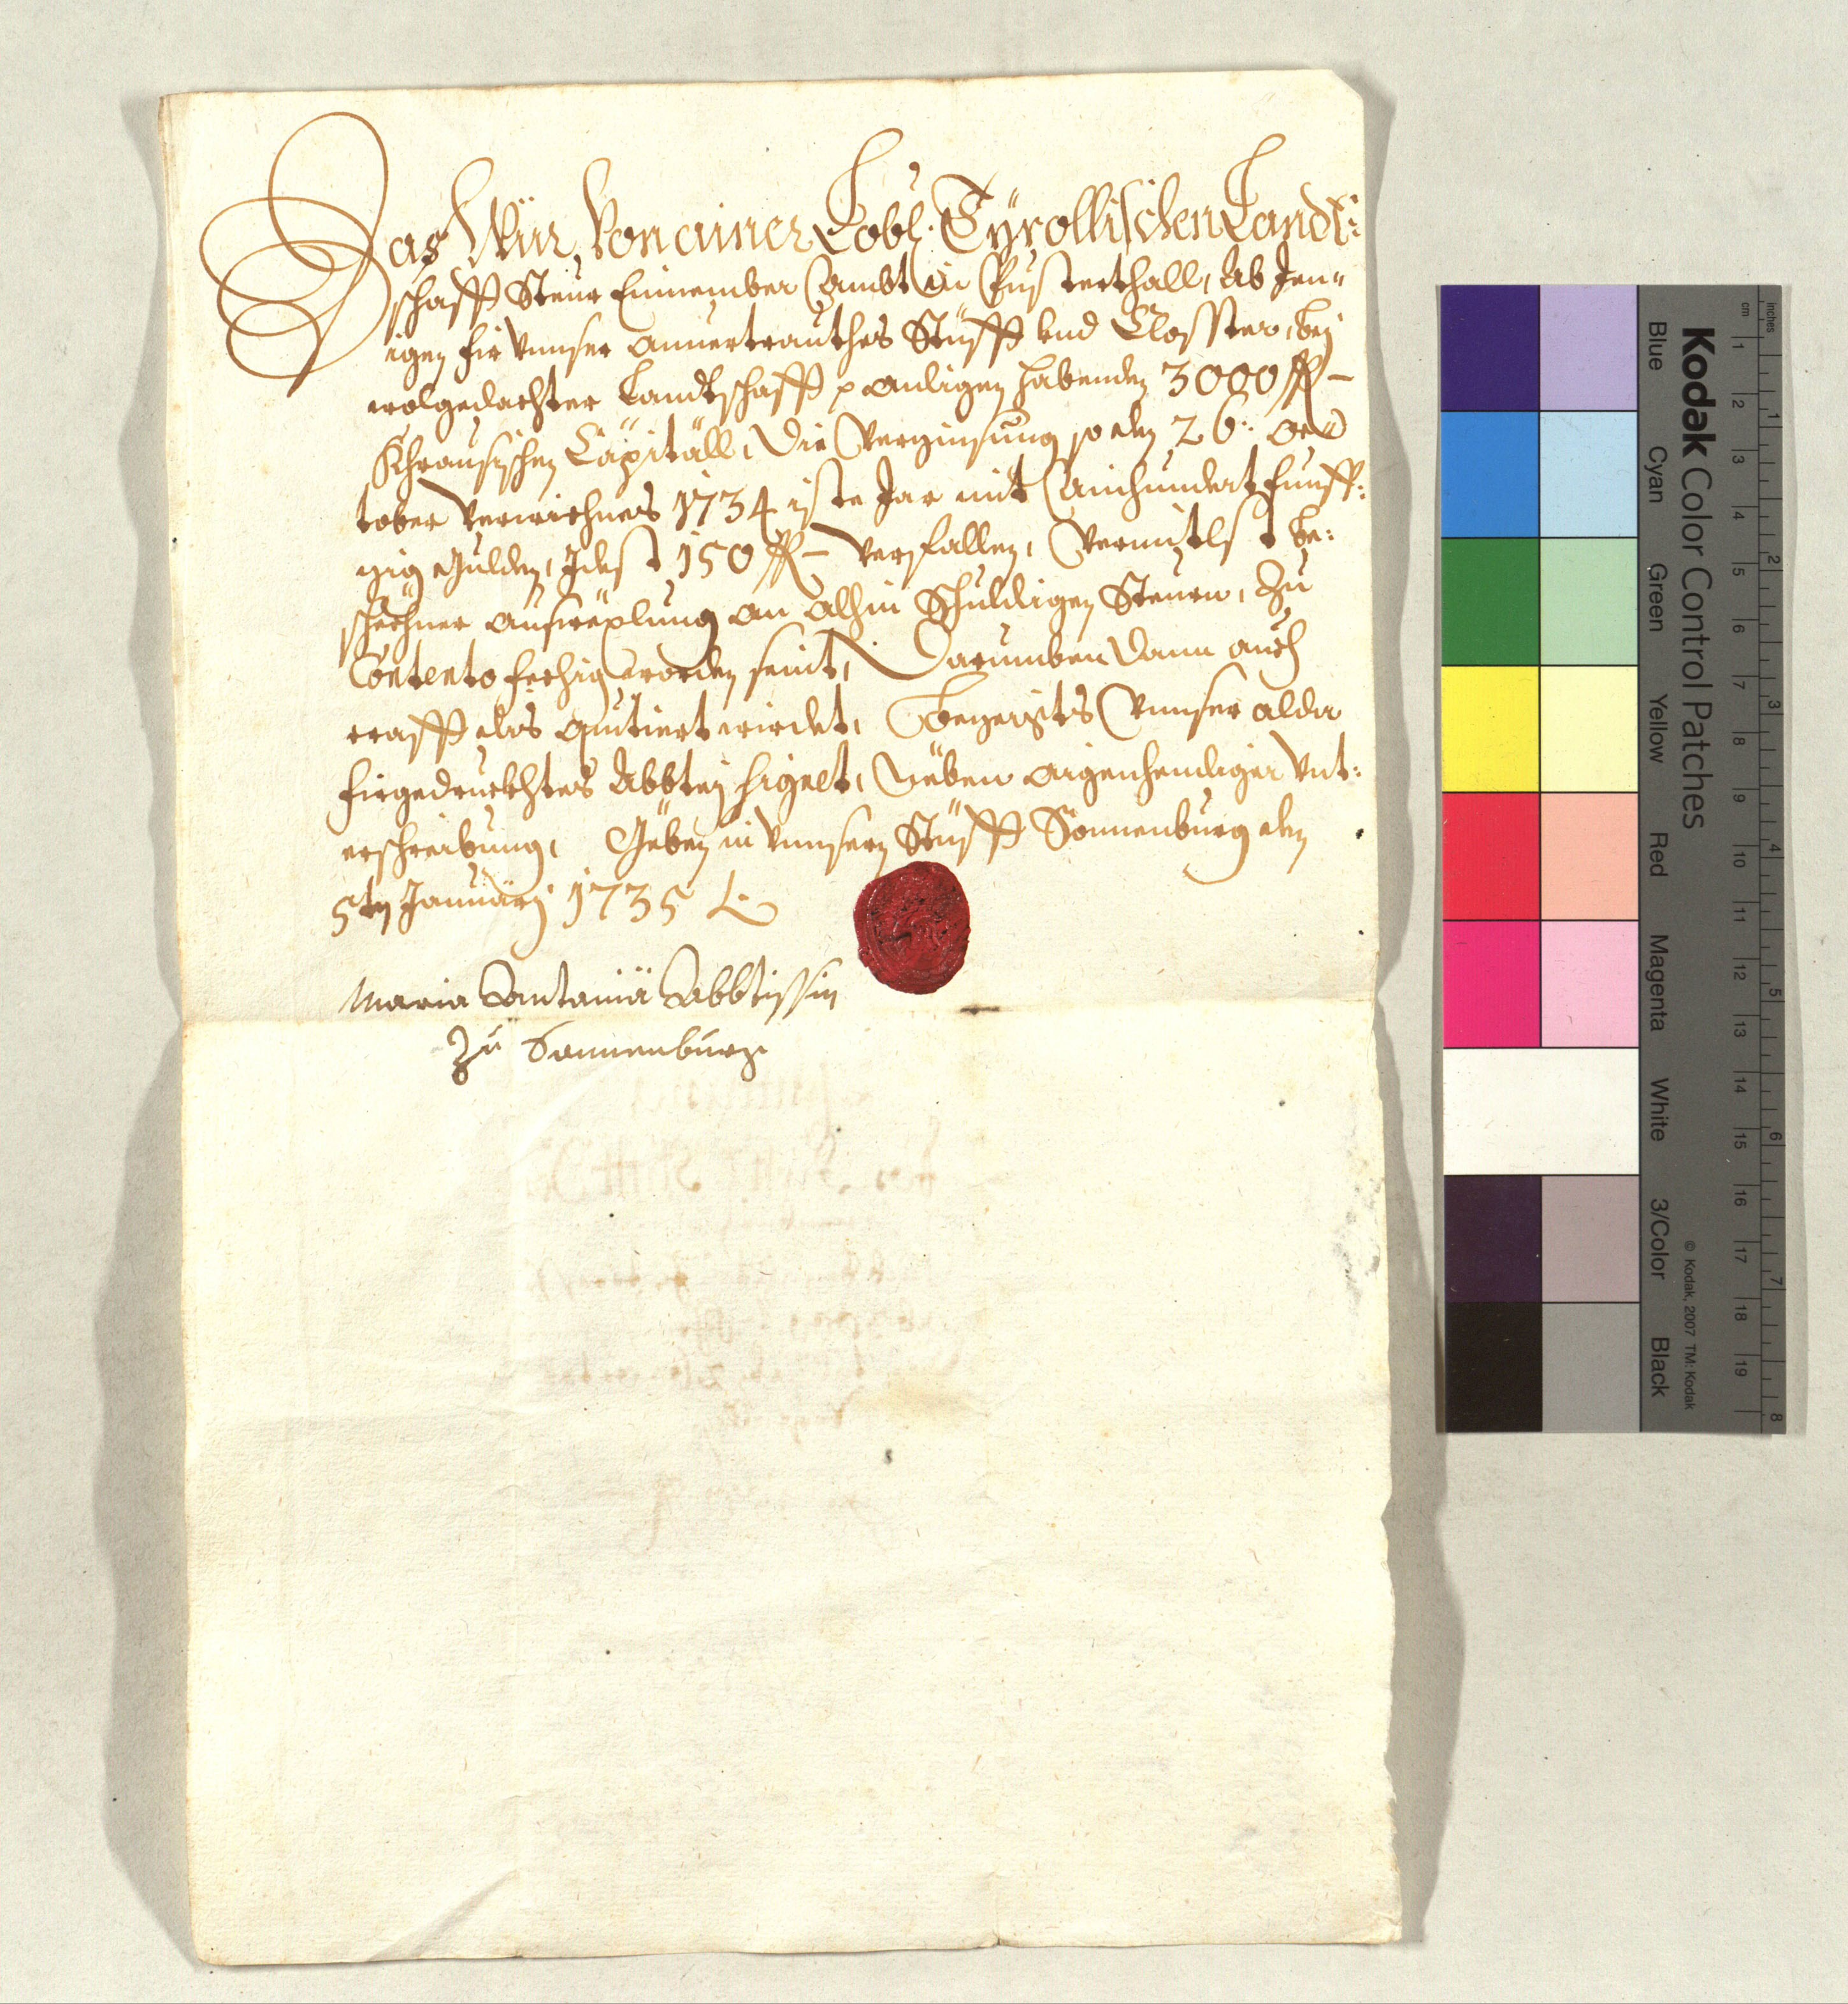 Das Wür, von ainer Löbl: Tÿrollischen Landt:
schafft Steur Einnember Ambt in Pusterthall, Ab Jen"
igen fir unnser anvertrauthes Stüfft und Closster, beÿ
wolgedachter Landtschafft p anligen habenden 3000 fl –
Khrausischen Capitall, Die Verzinsung so den 26: oc"
tober verwichnes 1734iste Jar mit Ainhundert funff:
zig Gulden, Idest 150 fl – verfallen, Vermitlst be:
schechner aufwexlung an alhin Schuldigen Steuern, Zu
Contento fechig worden seint, Darumben dann auch
crafft dis quitiert wirdet, Bezeigts Unnser alda
firgedruckhtes Abbteÿ signet, Neben aigenhendiger Unt:
erschreibung, Geben in unnsern Stüfft Sonnenburg den
5ten Januarÿ 1735
Maria Antania Abbtissin
Zu Sonnenburg
Kodak Color Control Patches
Blue Cyan Green Yellow Red Magenta White 3/Color Black
© Kodak, 2007 TM: Kodak
cm 1 2 3 4 5 6 7 8 9 10 11 12 13 14 15 16 17 18 19
inches 1 2 3 4 5 6 7 8